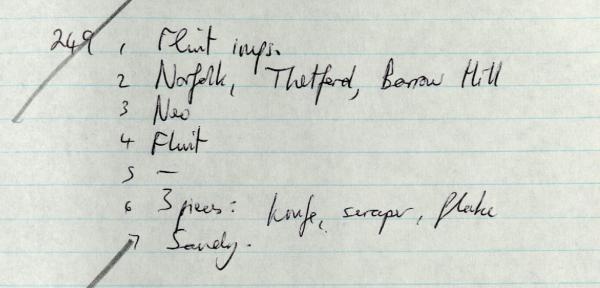 249, 1 Flint imps.
2 Norfolk, Thetford, Barrow Hill
3 Neo
4 Flint
5 —
6 3 pieces: knife, scraper, flake
7 Sandy.